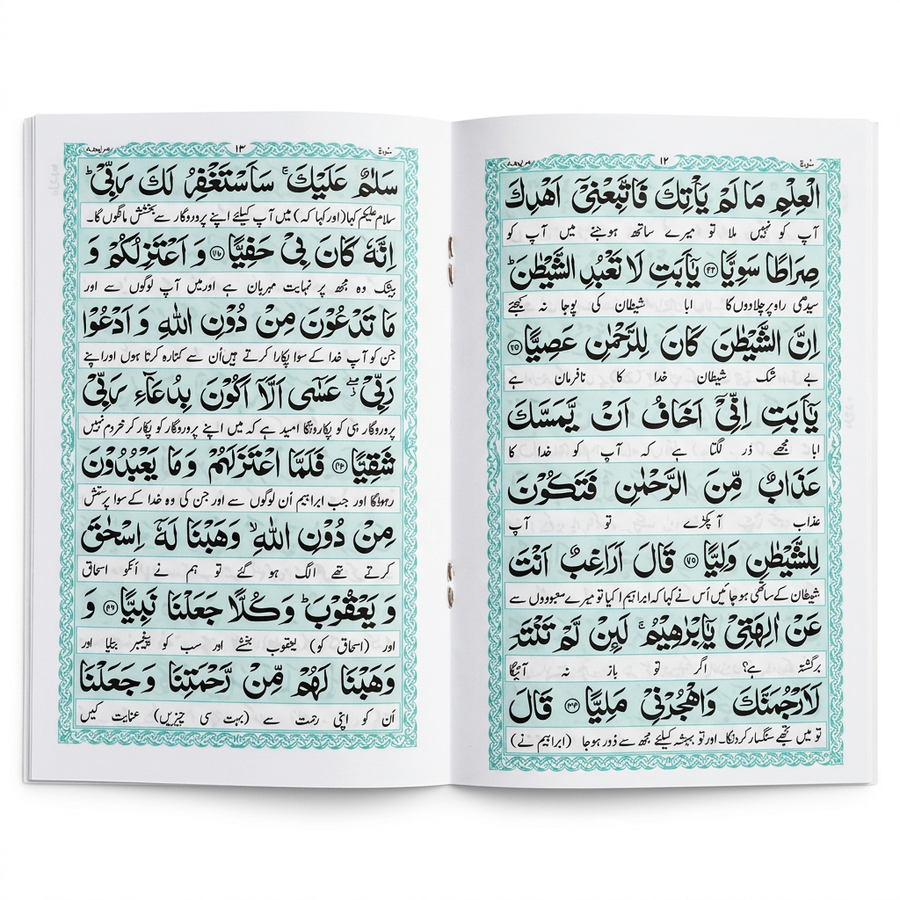 سورة
١٢
الْعِلْمِ مَا لَمْ يَأْتِكَ فَاتَّبِعْنِيْٓ اَهْدِكَ
آپ کو نہیں ملا تو میرے ساتھ ہوجئے میں آپ کو
صِرَاطًا سَوِيًّا ۴۳ يٰٓاَبَتِ لَا تَعْبُدِ الشَّيْطٰنَ ؕ
سیدھی راہ پر چلادوں گا ابا شیطان کی پوجا نہ کیجئے
اِنَّ الشَّيْطٰنَ كَانَ لِلرَّحْمٰنِ عَصِيًّا
بے شک شیطان خدا کا نافرمان ہے
يٰٓاَبَتِ اِنِّيْٓ اَخَافُ اَنْ يَّمَسَّكَ
ابا مجھے ڈر لگتا ہے کہ آپ کو خدا کا
عَذَابٌ مِّنَ الرَّحْمٰنِ فَتَكُوْنَ
عذاب آ پکڑے تو آپ
لِلشَّيْطٰنِ وَلِيًّا قَالَ اَرَاغِبٌ اَنْتَ
شیطان کے ساتھی ہوجائیں اُس نے کہا کہ ابراہیم کیا تو میرے معبودوں سے
عَنْ اٰلِهَتِيْ يٰٓاِبْرٰهِيْمُ ۚ لَئِنْ لَّمْ تَنْتَهِ
برگشتہ ہے؟ اگر تو باز نہ آئیگا
لَاَرْجُمَنَّكَ وَاهْجُرْنِيْ مَلِيًّا قَالَ
تو میں تجھے سنگسار کردونگا۔ اور تو ہمیشہ کیلئے مجھ سے دُور ہوجا (ابراہیم نے)
سورة
١٣
سَلٰمٌ عَلَيْكَ ۚ سَاَسْتَغْفِرُ لَكَ رَبِّيْ ؕ
سلام علیکم کہا (اور کہا کہ) میں آپ کیلئے اپنے پروردگار سے بخشش مانگوں گا۔
اِنَّهٗ كَانَ بِيْ حَفِيًّا وَ اَعْتَزِلُكُمْ وَ
بیشک وہ مجھ پر نہایت مہربان ہے اور میں آپ لوگوں سے اور
مَا تَدْعُوْنَ مِنْ دُوْنِ اللّٰهِ وَ اَدْعُوْا
جن کو آپ خدا کے سوا پکارا کرتے ہیں اُن سے کنارہ کرتا ہوں اور اپنے
رَبِّيْ ۖ عَسٰٓى اَلَّآ اَكُوْنَ بِدُعَآءِ رَبِّيْ
پروردگار ہی کو پکارونگا امید ہے کہ میں اپنے پروردگار کو پکار کر محروم نہیں
شَقِيًّا فَلَمَّا اعْتَزَلَهُمْ وَ مَا يَعْبُدُوْنَ
رہونگا اور جب ابراہیم اُن لوگوں سے اور جن کی وہ خدا کے سوا پرستش
مِنْ دُوْنِ اللّٰهِ ۙ وَهَبْنَا لَهٗٓ اِسْحٰقَ
کرتے تھے الگ ہو گئے تو ہم نے اُنکو اسحاق
وَ يَعْقُوْبَ ؕ وَكُلًّا جَعَلْنَا نَبِيًّا ۴۹ وَ
اور (اسحاق کو) یعقوب بخشے اور سب کو پیغمبر بنایا اور
وَهَبْنَا لَهُمْ مِّنْ رَّحْمَتِنَا وَ جَعَلْنَا
اُن کو اپنی رحمت سے (بہت سی چیزیں) عنایت کیں